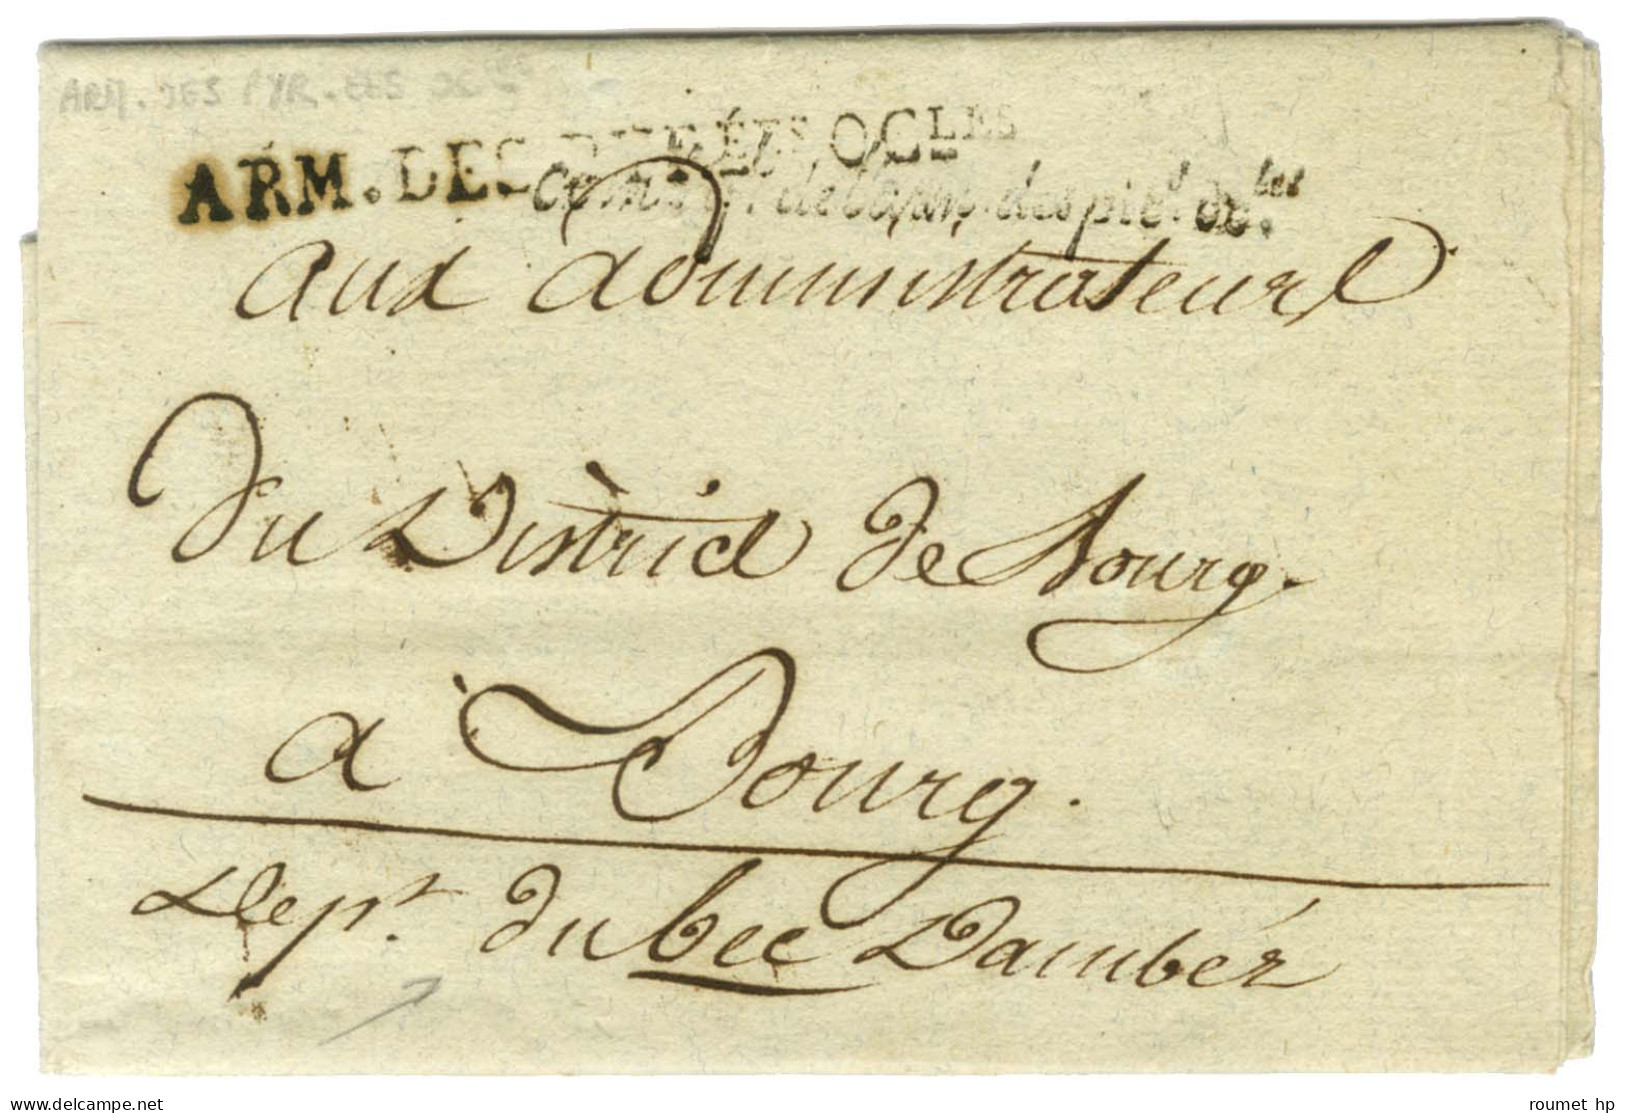 ARM. DES PYR.EES OC
ARM. DES PYRÉÉS. OCLES
de l'arm. des pir. oc.les
aux administrateurs
du District de Bourg.
à Bourg.
Dept. du bec Dambéz
www.delcampe.net
roumet hp